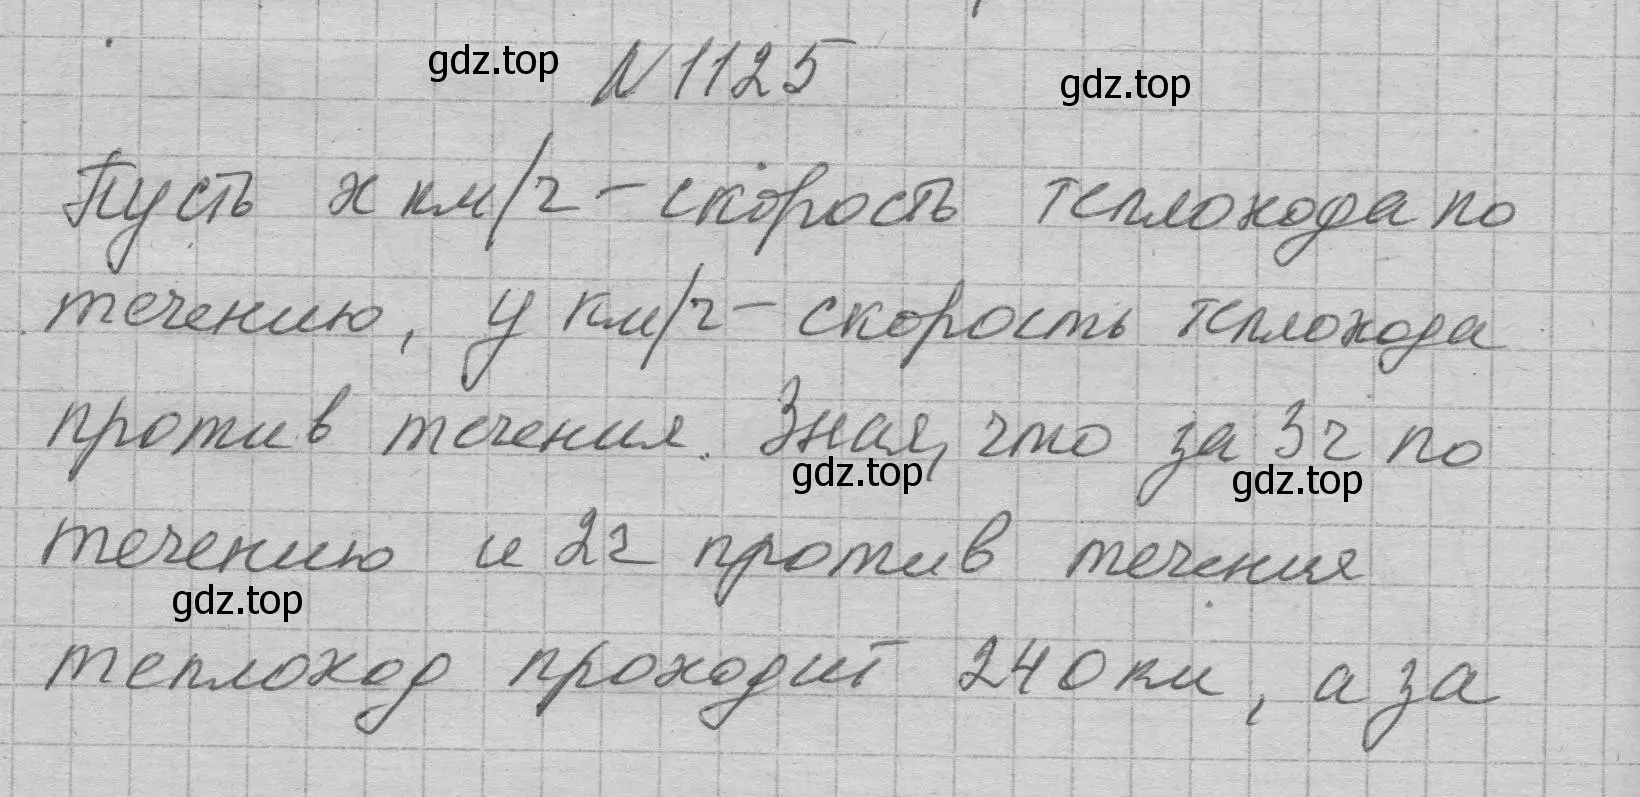 N 1125
gdz.top
gdz.top
Пусть x км/ч - скорость теплохода по
течению, y км/ч - скорость теплохода
против течения. Зная, что за 3ч по
gdz.top
gdz.top
течению и 2ч против течения
gdz.top
теплоход проходит 240км, а за